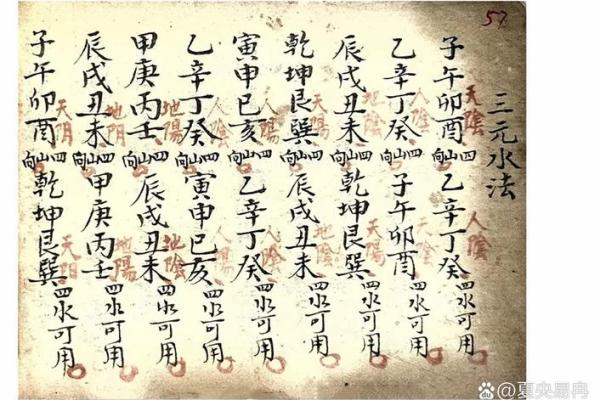 57
三元水法
子午卯酉四山向乙辛丁癸四水可用
天陰 人陰
乙辛丁癸四山向子午卯酉四水可用
人陰 天陰
辰戌丑未四山向乾坤艮巽四水可用
地陰 天陽
乾坤艮巽四山向辰戌丑未四水可用
天陽 地陰
寅申巳亥四山向乙辛丁癸四水可用
人陽 人陰
乙辛丁癸四山向寅申巳亥四水可用
人陰
甲庚丙壬四山向辰戌丑未四水可用
地陽 地陰
辰戌丑未四山向甲庚丙壬四水可用
地阴 地陽
子午卯酉四山向乾坤艮巽四水可用
天阴 天阳
du @夏央易冉